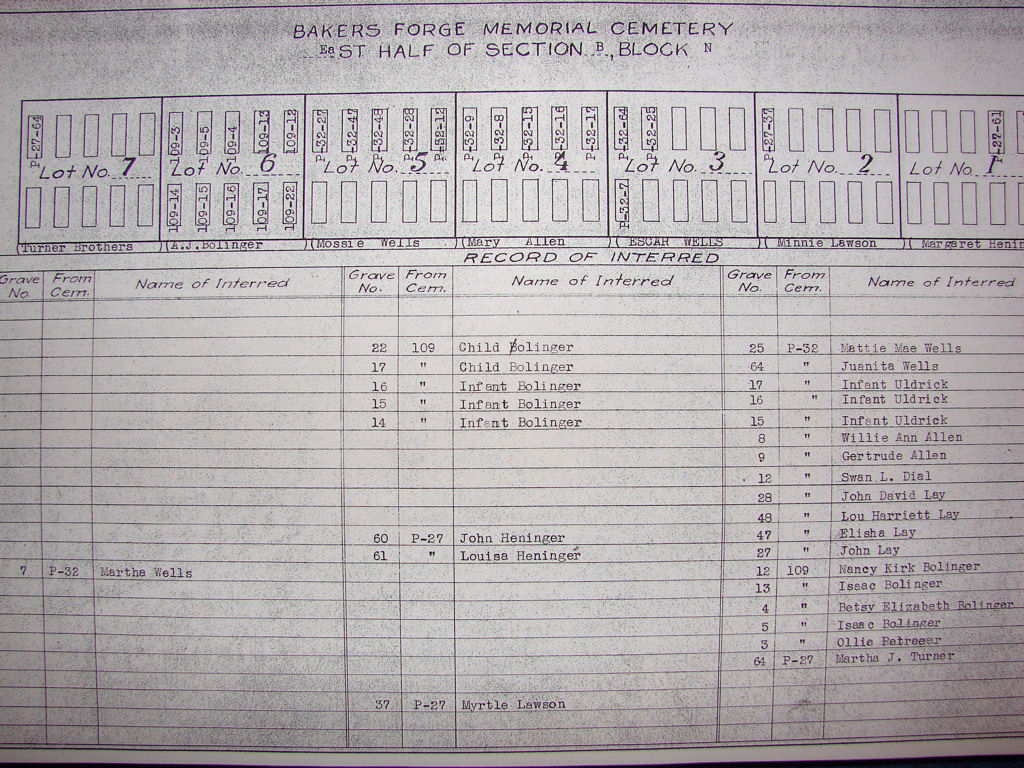 BAKERS FORGE MEMORIAL CEMETERY
EaST HALF OF SECTION B, BLOCK N
P-27-64
109-3 109-5 109-4 109-13 109-12
P-32-27 P-32-47 P-32-48 P-32-28 P-32-12
P-32-9 P-32-8 P-32-15 P-32-16 P-32-17
P-32-64 P-32-25
P-27-37
P-27-61
Lot No. 7 Lot No. 6 Lot No. 5 Lot No. 4 Lot No. 3 Lot No. 2 Lot No. 1
109-14 109-15 109-16 109-17 109-22
P-32-7
(Turner Brothers )(A.J.Bolinger )(Mossie Wells )(Mary Allen )( ESCAR WELLS )( Minnie Lawson )( Margaret Henin
RECORD OF INTERRED
Grave No. From Cem. Name of Interred Grave No. From Cem. Name of Interred Grave No. From Cem. Name of Interred
22 109 Child Bolinger 25 P-32 Mattie Mae Wells
17 " Child Bolinger 64 " Juanita Wells
16 " Infant Bolinger 17 " Infant Uldrick
15 " Infant Bolinger 16 " Infant Uldrick
14 " Infant Bolinger 15 " Infant Uldrick
8 " Willie Ann Allen
9 " Gertrude Allen
12 " Swan L. Dial
28 " John David Lay
48 " Lou Harriett Lay
60 P-27 John Heninger 47 " Elisha Lay
61 " Louisa Heninger 27 " John Lay
7 P-32 Martha Wells 12 109 Nancy Kirk Bolinger
13 " Isaac Bolinger
4 " Betsy Elizabeth Bolinger
5 " Isaac Bolinger
3 " Ollie Petreeer
64 P-27 Martha J. Turner
37 P-27 Myrtle Lawson